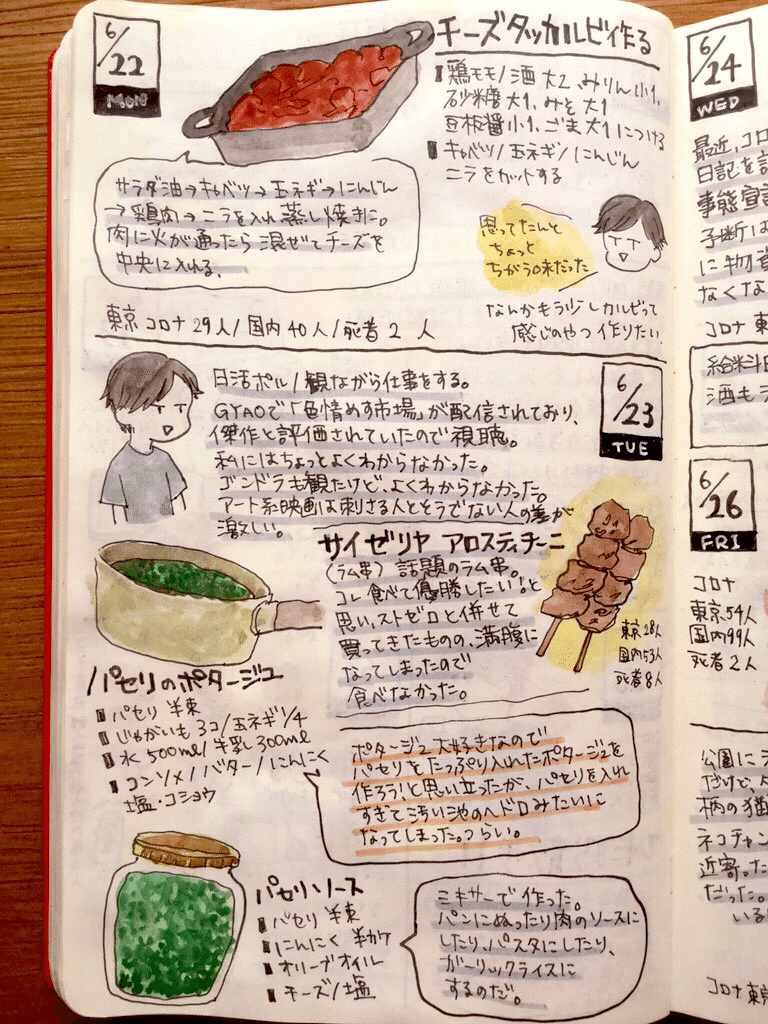 6/22
MON
チーズタッカルビ作る
鶏モモ/酒大2、みりん小1、
砂糖大1、みそ大1
豆板醤小1、ごま大1につける
キャベツ/玉ネギ/にんじん
ニラをカットする
サラダ油→キャベツ→玉ネギ→にんじん
→鶏肉→ニラを入れ蒸し焼きに。
肉に火が通ったら混ぜてチーズを
中央に入れる。
思ってたんと
ちょっと
ちがう味だった
なんかもう少しカルビって
感じのやつ作りたい
東京コロナ29人/国内40人/死者2人
6/23
TUE
日活ポル/観ながら仕事をする。
GYAOで「色情めす市場」が配信されており、
傑作と評価されていたので視聴。
私にはちょっとよくわからなかった。
ゴンドラも観たけど、よくわからなかった。
アート系映画は刺さる人とそうでない人の差が
激しい。
サイゼリヤ アロスティチーニ
(ラム串) 話題のラム串。
コレ食べて優勝したい!と
思い、ストゼロと併せて
買ってきたものの、満腹に
なってしまったので
食べなかった。
東京28人
国内53人
死者8人
パセリのポタージュ
パセリ半束
じゃがいも3コ/玉ネギ1/4
水500ml/牛乳300ml
コンソメ/バター/にんにく
塩・コショウ
ポタージュ大好きなので
パセリをたっぷり入れたポタージュを
作ろう!と思い立ったが、パセリを入れ
すぎて汚い池のヘドロみたいに
なってしまった。つらい。
パセリソース
パセリ半束
にんにく半カケ
オリーブオイル
チーズ/塩
ミキサーで作った。
パンにぬったり肉のソースに
したり、パスタにしたり、
ガーリックライスに
するのだ。
6/24
WED
最近、コロ
日記を
事態宣
予断は
に物資
なくな
コロナ 東
給料日
酒も
6/26
FRI
コロナ
東京54人
国内99人
死者2人
公園に
だけど、
柄の猫
ネコチャン
近寄った
だった。
いる
コロナ東